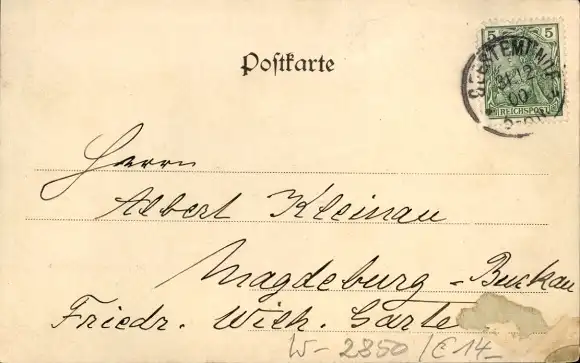 5 5
Postkarte
GEESTEMÜNDE
31.12
00
REICHSPOST
Herrn
Albert Kleinau
Magdeburg - Buckau
Friedr. Wilh. Garte
W - 2850 / E 14